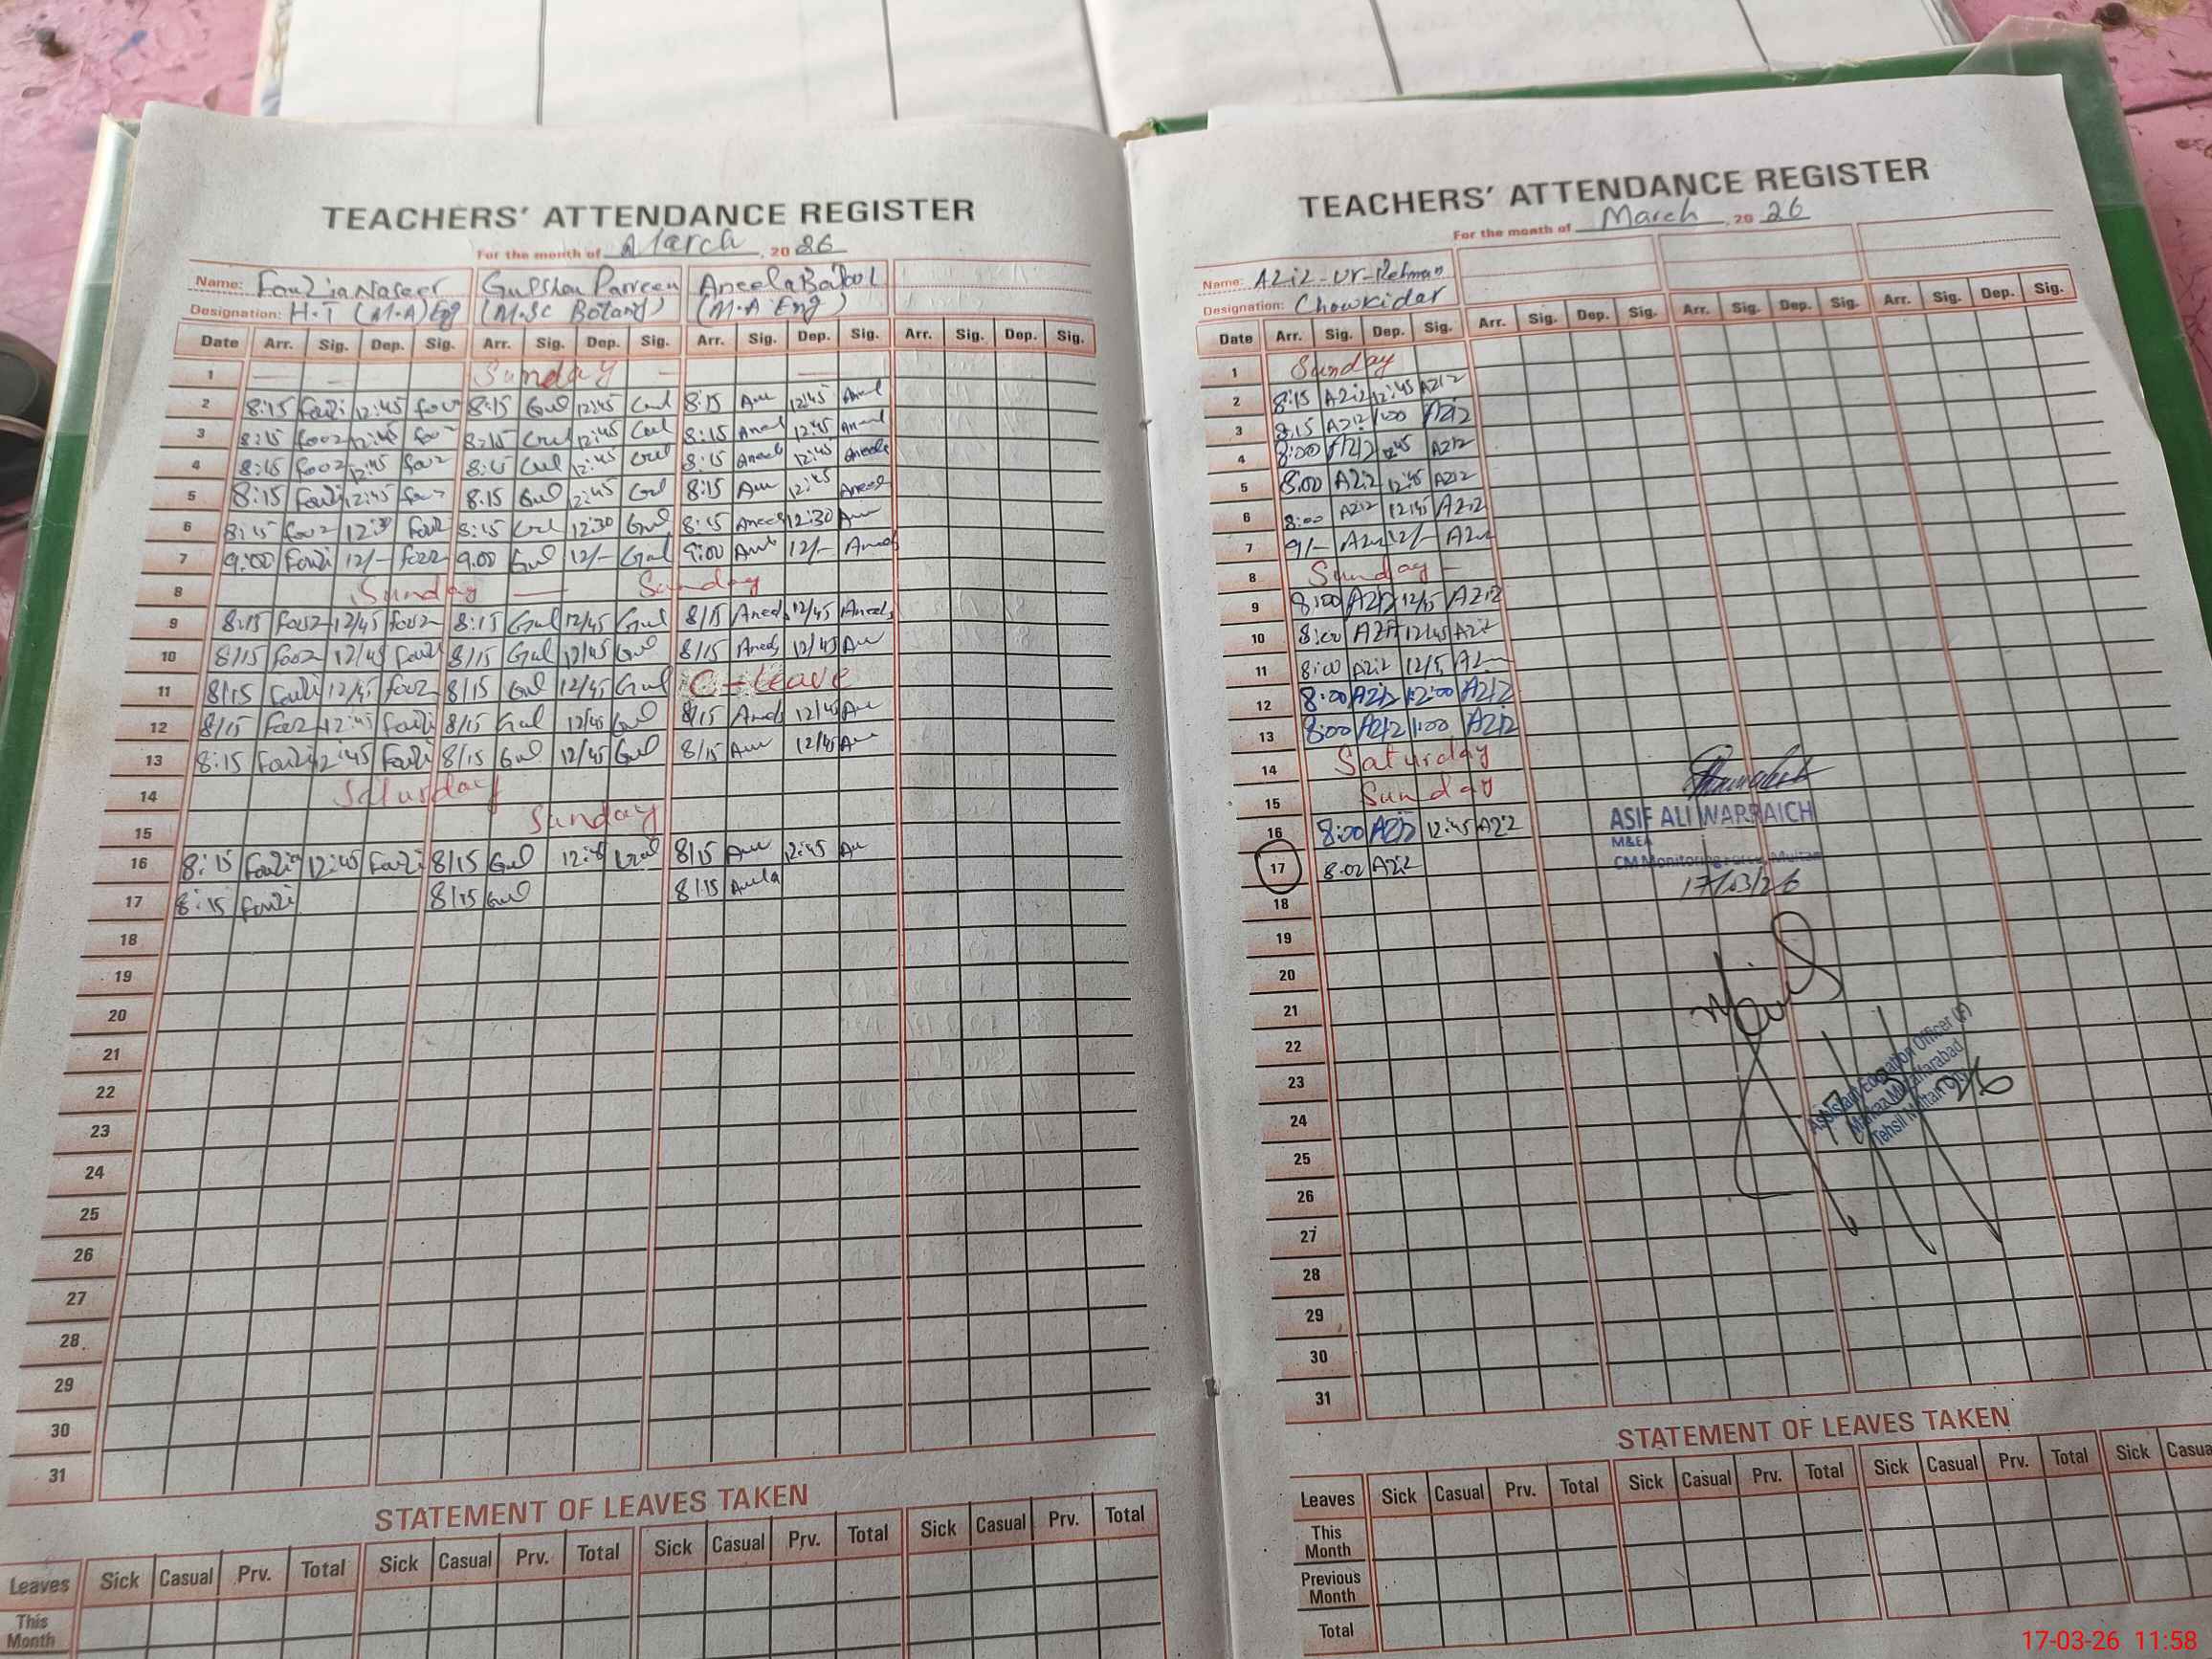 TEACHERS' ATTENDANCE REGISTER
For the month of March, 20 26
Name: Fouzia Naseer Gulshan Parveen Aneela Batool
Designation: H.T (M.A) Eng (M.Sc Botany) (M.A Eng)
Date Arr. Sig. Dep. Sig. Arr. Sig. Dep. Sig. Arr. Sig. Dep. Sig. Arr. Sig. Dep. Sig.
1 Sunday
2 8:15 Fouzi 12:45 fou 8:15 Gul 12:45 Gul 8:15 An 12:45 Anel
3 8:15 fouz 12:45 fou 8:15 Gul 12:45 Gul 8:15 Aneel 12:45 Aneel
4 8:15 fouz 12:45 fouz 8:15 Gul 12:45 Gul 8:15 Aneela 12:45 Aneela
5 8:15 Fouzi 12:45 fou 8:15 Gul 12:45 Gul 8:15 An 12:45 Aneel
6 8:15 fouz 12:30 Fouz 8:15 Gul 12:30 Gul 8:15 Aneel 12:30 An
7 9:00 Fouzi 12/- fouz 9:00 Gul 12/- Gul 9:00 An 12/- Aneel
8 Sunday — Sunday
9 8:15 Fouz 12/45 fouz 8:15 Gul 12/45 Gul 8/15 Aneel 12/45 Aneel
10 8/15 Fouz 12/45 Fouzi 8/15 Gul 12/45 Gul 8/15 Aneel 12/45 An
11 8/15 Fouzi 12/45 fouz 8/15 Gul 12/45 Gul C-Leave
12 8/15 Fouz 12:45 Fouzi 8/15 Gul 12/45 Gul 8/15 Aneel 12/45 An
13 8:15 Fouzi 12:45 Fouzi 8/15 Gul 12/45 Gul 8/15 An 12/45 An
14 Saturday
15 Sunday
16 8:15 Fouzia 12:45 Fouzi 8/15 Gul 12:45 Gul 8/15 An 12:45 An
17 8:15 Fouzi 8/15 Gul 8/15 Anela
18
19
20
21
22
23
24
25
26
27
28
29
30
31
STATEMENT OF LEAVES TAKEN
Leaves Sick Casual Prv. Total Sick Casual Prv. Total Sick Casual Prv. Total Sick Casual Prv. Total
This Month
TEACHERS' ATTENDANCE REGISTER
For the month of March, 20 26
Name: Aziz-Ur-Rehman
Designation: Chowkidar
Date Arr. Sig. Dep. Sig. Arr. Sig. Dep. Sig. Arr. Sig. Dep. Sig. Arr. Sig. Dep. Sig.
1 Sunday
2 8:15 Aziz 12:45 Aziz
3 8.15 Aziz 1:00 Aziz
4 8:00 Aziz 12:45 Aziz
5 8:00 Aziz 12:45 Aziz
6 8:00 Aziz 12:45 Aziz
7 9/- Aziz 12/- Aziz
8 Sunday -
9 8:00 Aziz 12/45 Aziz
10 8:00 Aziz 12:45 Aziz
11 8:00 Aziz Aziz
12 8:00 Aziz 12:00 Aziz
13 8:00 Aziz 1:00 Aziz
14 Saturday
15 Sunday
16 8:00 Aziz 12:45 Aziz
17 8:02 Aziz
ASIF ALI WARRAICH
M&EA
CM Monitoring Force, Multan
17/03/26
18
19
20
21
22
23
24
25
26
27
28
29
30
31
Assistant Education Officer (F)
Markaz Muzaffarabad
Tehsil Multan
STATEMENT OF LEAVES TAKEN
Leaves Sick Casual Prv. Total Sick Casual Prv. Total Sick Casual Prv. Total Sick Casua
This Month
Previous Month
Total
17-03-26 11:58